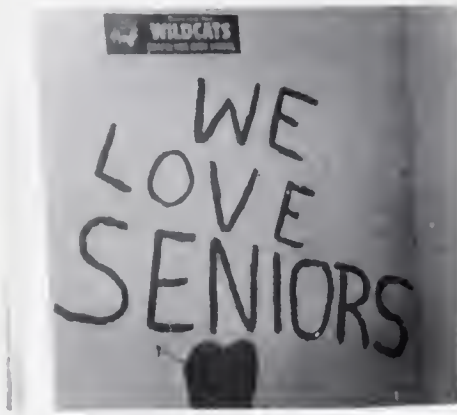 WILDCATS
WE
LOVE
SENIORS